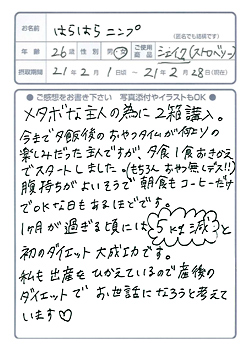 お名前 はらはらニンプ
(匿名でも結構です)
年齢 26歳 性別 男・女 ご使用商品 シェイク(ストロベリー)
摂取期間 21年2月1日頃 ～ 21年2月28日(現在)
● ご感想をお書き下さい 写真添付やイラストもOK ●
メタボな主人の為に2箱購入。
今まで夕飯後のおやつタイムが何よりの
楽しみだった主人ですが、夕食1食おきかえ
でスタートしました。(もちろんおやつ無しデス!!)
腹持ちがよいそうで朝食もコーヒーだけ
でOKな日もあるほどです。
1ヶ月が過ぎる頃には5kg減と
初のダイエット大成功です。
私も出産をひかえているので産後の
ダイエットでお世話になろうと考えて
います♡